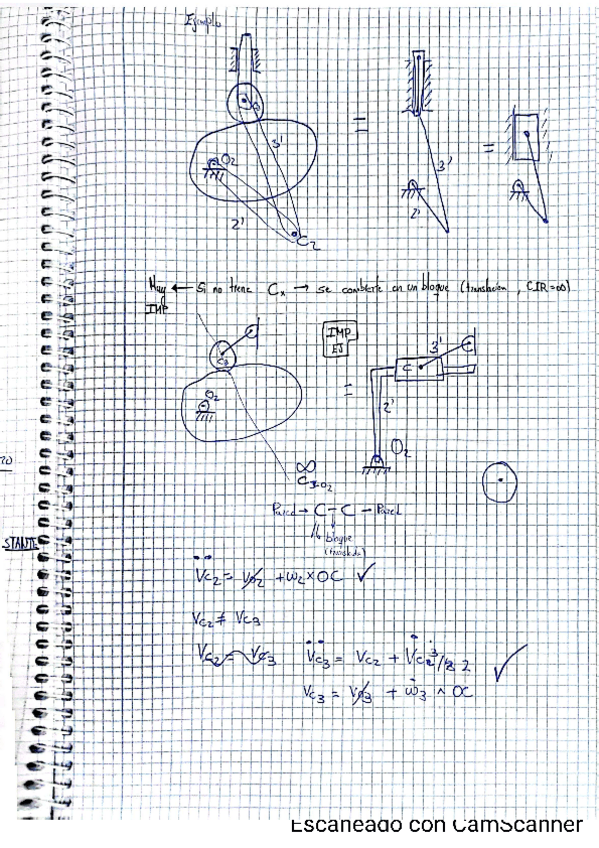 Ejemplo
O₂
3'
2'
C₂
=
3'
2'
=
Muy ← Si no tiene Cₓ → se combierte en un bloque (translacion, CIR=∞)
IMP
C₃
O₂
∞
IMP
EJ
=
3'
C
2'
O₂
Pared → C - C - Pared
bloque
STANTE
Vc₂ = V₀₂ + ω₂ × OC ✓
Vc₂ ≠ Vc₃
Vc₂ = Vc₃
Vc₃ = Vc₂ +
Vc₃ = V₀₃ + ω₃ ∧ OC
Escaneado con CamScanner